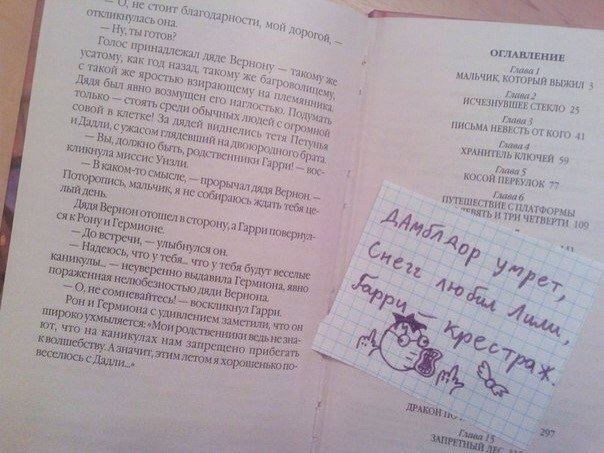 — О, не стоит благодарности, мой дорогой, —
откликнулась она.
— Ну, ты готов?
Голос принадлежал дяде Вернону — такому же
усатому, как год назад, такому же багроволицему,
с такой же яростью взирающему на племянника.
Дядя был явно возмущен его наглостью. Подумать
только — стоять среди обычных людей с огромной
совой в клетке! За дядей виднелись тетя Петунья
и Дадли, с ужасом глядевший на двоюродного брата.
— Вы, должно быть, родственники Гарри! — вос-
кликнула миссис Уизли.
— В каком-то смысле, — прорычал дядя Вернон. —
Поторопись, мальчик, я не собираюсь ждать тебя це-
лый день.
Дядя Вернон отошел в сторону, а Гарри повернул-
ся к Рону и Гермионе.
— До встречи, — улыбнулся он.
— Надеюсь, что у тебя... что у тебя будут веселые
каникулы... — неуверенно выдавила Гермиона, явно
пораженная нелюбезностью дяди Вернона.
— О, не сомневайтесь! — воскликнул Гарри.
Рон и Гермиона с удивлением заметили, что он
широко ухмыляется: «Мои родственники ведь не зна-
ют, что на каникулах нам запрещено прибегать
к волшебству. А значит, этим летом я хорошенько по-
веселюсь с Дадли...»
ОГЛАВЛЕНИЕ
Глава 1
МАЛЬЧИК, КОТОРЫЙ ВЫЖИЛ 3
Глава 2
ИСЧЕЗНУВШЕЕ СТЕКЛО 25
Глава 3
ПИСЬМА НЕВЕСТЬ ОТ КОГО 41
Глава 4
ХРАНИТЕЛЬ КЛЮЧЕЙ 59
Глава 5
КОСОЙ ПЕРЕУЛОК 77
Глава 6
ПУТЕШЕСТВИЕ С ПЛАТФОРМЫ
ДЕВЯТЬ И ТРИ ЧЕТВЕРТИ 109
ДАМБЛДОР УМРЕТ,
Снегг любил Лили,
Гарри — крестраж.
ДРАКОН
297
Глава 15
ЗАПРЕТНЫЙ ЛЕС